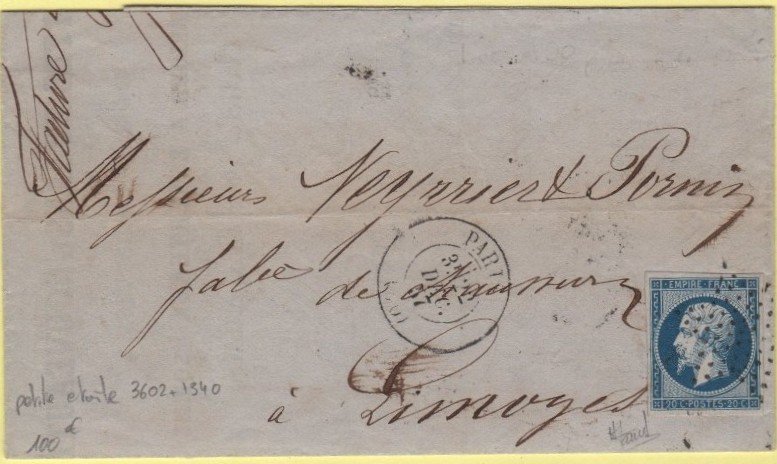 Facture
Messieurs Neyrier & Pornin
fabts de chaussures
à Limoges
PARIS
3
DEC.
57
(60)
EMPIRE FRANC
20 C·POSTES·20 C
petite etoile 3602+1340
100 €